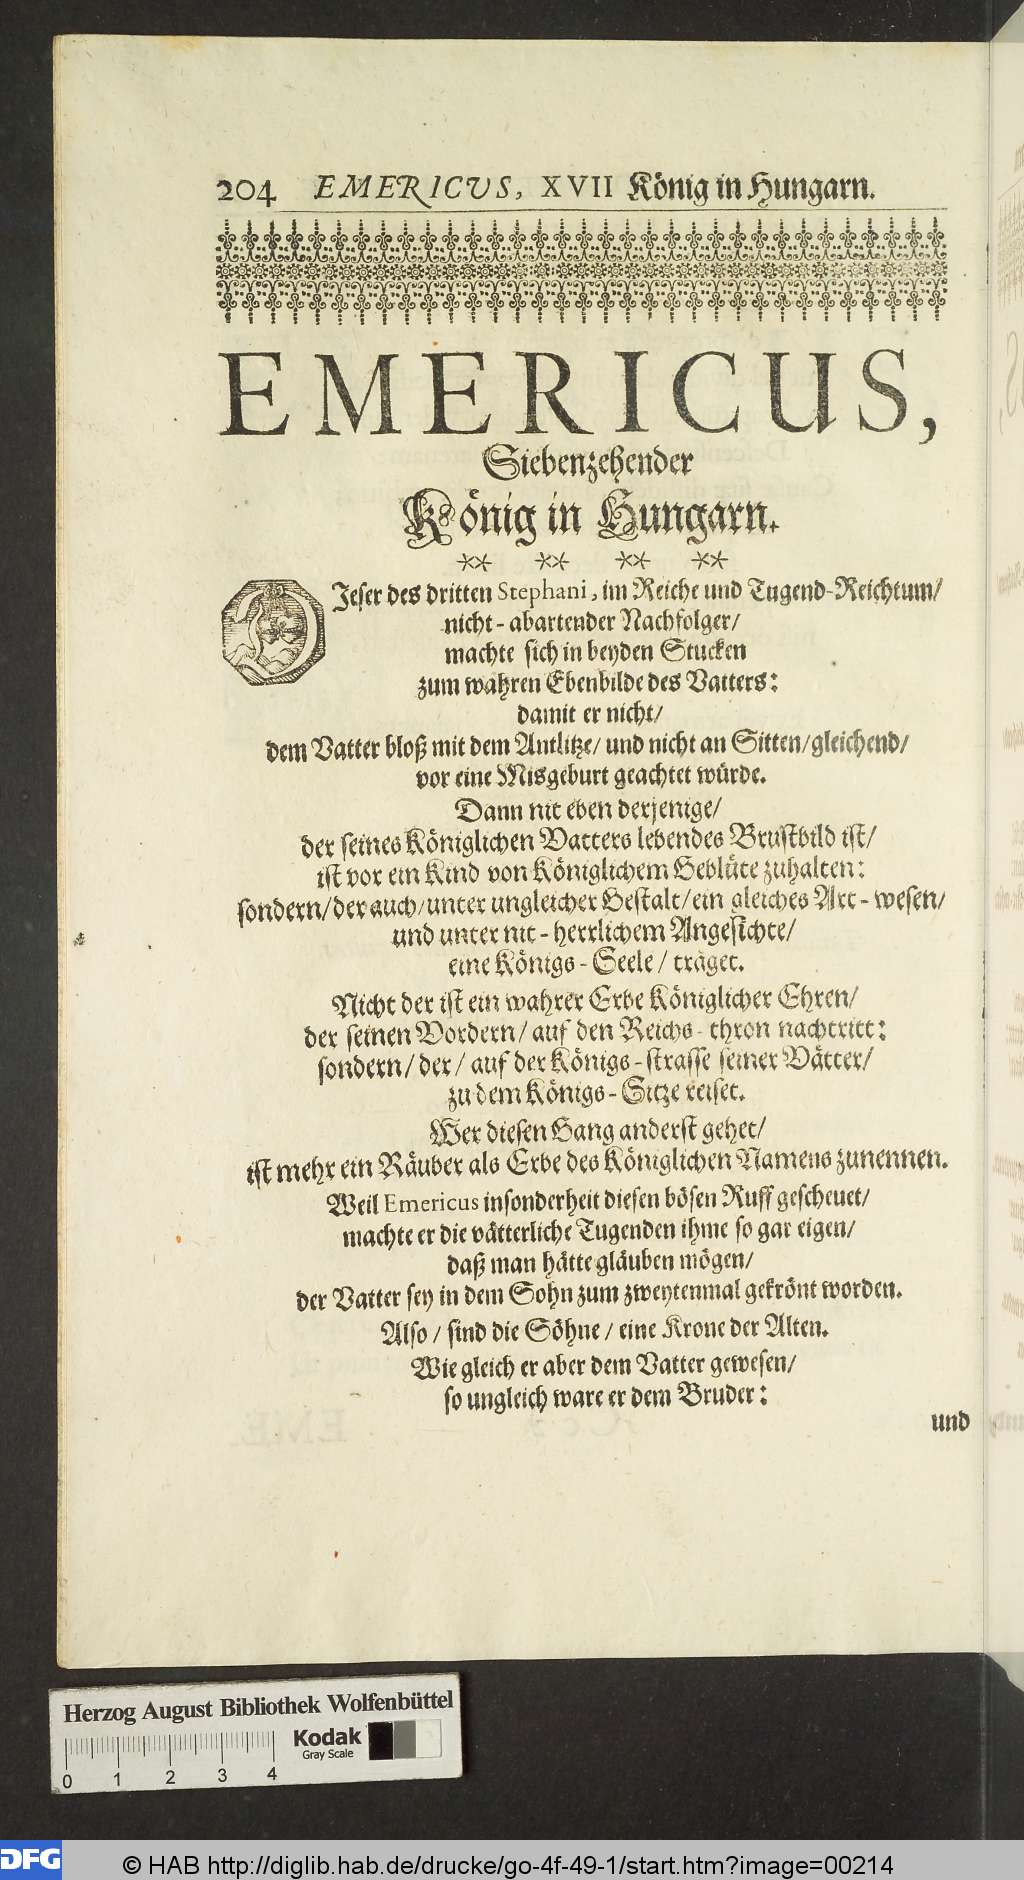 204 EMERICUS, XVII König in Hungarn.
EMERICUS,
Siebenzehender
König in Hungarn.
** ** ** **
DJeser des dritten Stephani, im Reiche und Tugend-Reichtum/
nicht-abartender Nachfolger/
machte sich in beyden Stucken
zum wahren Ebenbilde des Vatters:
damit er nicht/
dem Vatter bloß mit dem Antlitze/ und nicht an Sitten/ gleichend/
vor eine Misgeburt geachtet würde.
Dann nit eben derjenige/
der seines Königlichen Vatters lebendes Brustbild ist/
ist vor ein Kind von Königlichem Geblüte zuhalten:
sondern/ der auch/ unter ungleicher Gestalt/ ein gleiches Art-wesen/
und unter nit-herrlichem Angesichte/
eine Königs-Seele/ träget.
Nicht der ist ein wahrer Erbe Königlicher Ehren/
der seinen Vordern/ auf den Reichs-thron nachtritt:
sondern/ der/ auf der Königs-strasse seiner Vätter/
zu dem Königs-Sitze reiset.
Wer diesen Gang anderst gehet/
ist mehr ein Räuber als Erbe des Königlichen Namens zunennen.
Weil Emericus insonderheit diesen bösen Ruff gescheuet/
machte er die vätterliche Tugenden ihme so gar eigen/
daß man hätte gläuben mögen/
der Vatter sey in dem Sohn zum zweytenmal gekrönt worden.
Also/ sind die Söhne/ eine Krone der Alten.
Wie gleich er aber dem Vatter gewesen/
so ungleich ware er dem Bruder:
und
Herzog August Bibliothek Wolfenbüttel
Kodak
Gray Scale
0 1 2 3 4
DFG © HAB http://diglib.hab.de/drucke/go-4f-49-1/start.htm?image=00214